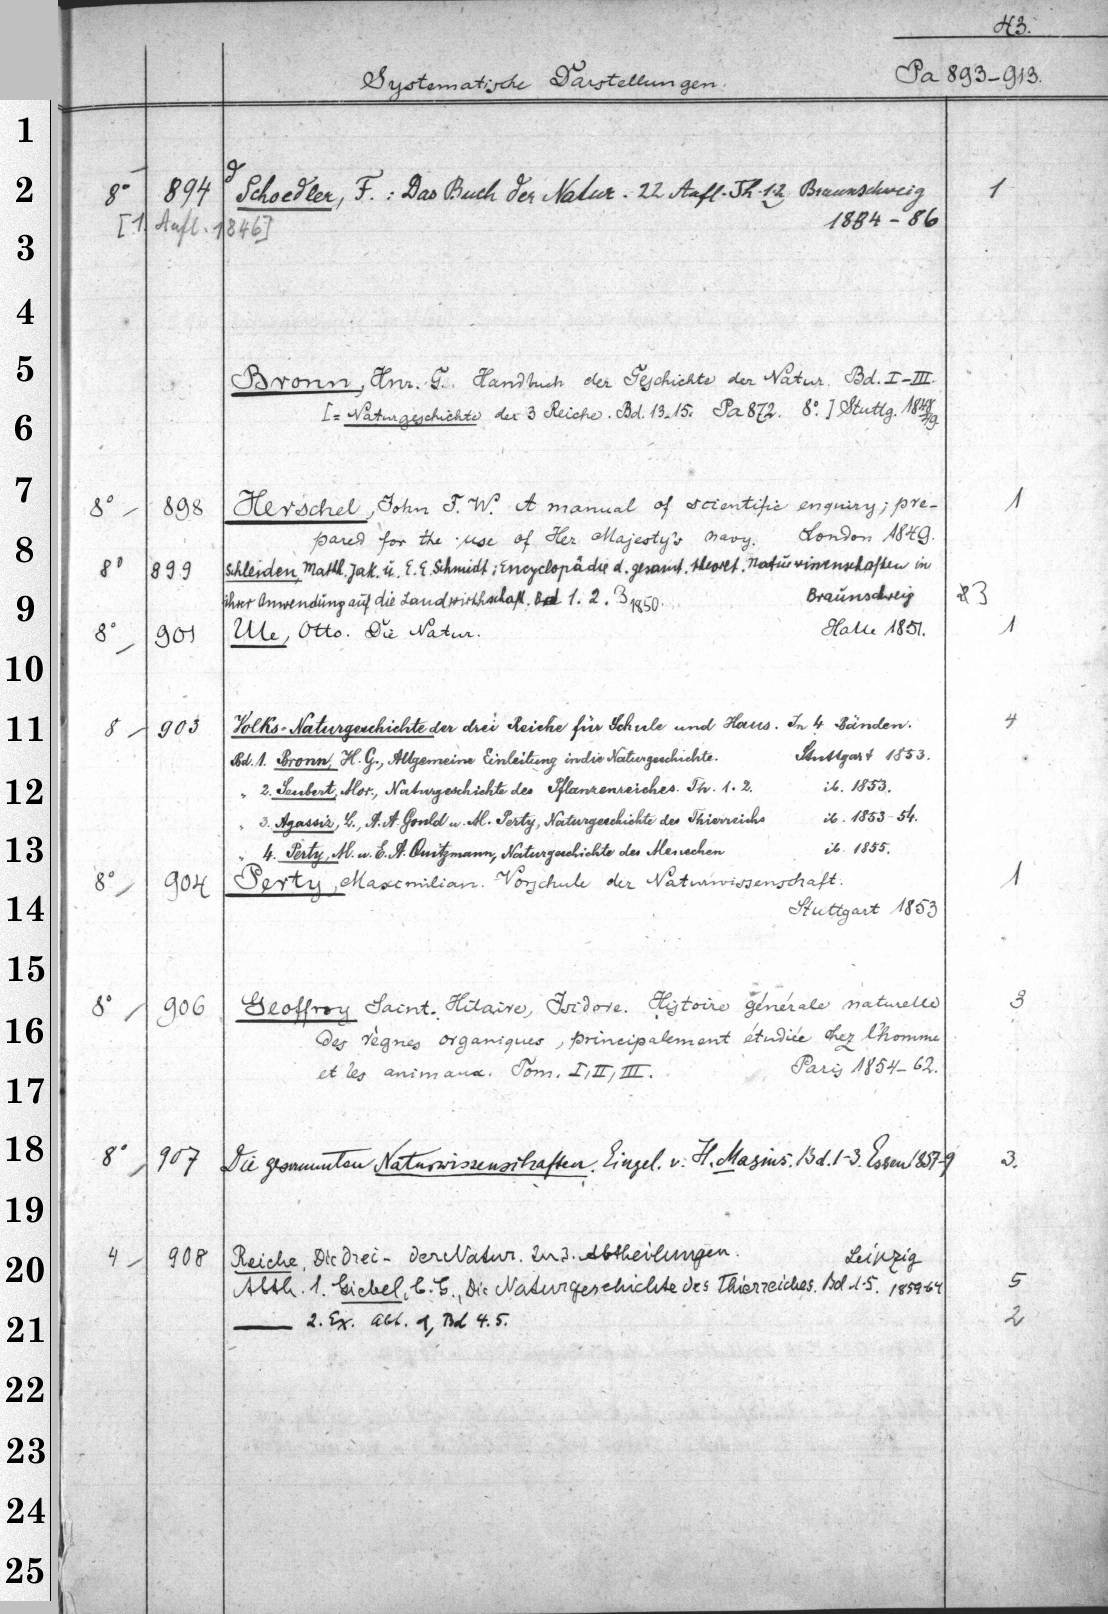 43.
Systematische Darstellungen. Pa 893-913.
1
2 8° 894 d Schoedler, F. : Das Buch der Natur. 22 Aufl. Th. 1-2 Braunschweig 1
[1. Aufl. 1846] 1884-86
3
4
5 Bronn, Hnr. G. Handbuch der Geschichte der Natur. Bd. I-III.
6 [= Naturgeschichte der 3 Reiche. Bd. 13-15. Pa 872. 8°.] Stuttg. 1848/49
7 8° - 898 Herschel, John F. W. A manual of scientific enquiry; pre- 1
8 pared for the use of Her Majesty's navy. London 1849.
8° 899 Schleiden, Matth. Jak. u. E. E. Schmidt; Encyclopädie d. gesamt. theoret. Naturwissenschaften in
9 ihrer Anwendung auf die Landwirthschaft. Bd 1. 2. 3 1850. Braunschweig 3
8° - 901 Ule, Otto. Die Natur. Halle 1851. 1
10
11 8 - 903 Volks-Naturgeschichte der drei Reiche für Schule und Haus. In 4 Bänden. 4
Bd. 1. Bronn, H. G., Allgemeine Einleitung in die Naturgeschichte. Stuttgart 1853.
12 " 2. Seubert, Mor., Naturgeschichte des Pflanzenreiches. Th. 1. 2. ib. 1853.
" 3. Agassiz, L., A. A. Gould u. M. Perty, Naturgeschichte des Thierreichs ib. 1853-54.
13 " 4. Perty, M. u. E. A. Quitzmann, Naturgeschichte des Menschen ib. 1855.
8° - 904 Perty, Maxmilian. Vorschule der Naturwissenschaft. 1
14 Stuttgart 1853
15
8° - 906 Geoffroy Saint-Hilaire, Isidore. Histoire générale naturelle 3
16 des règnes organiques, principalement étudiée chez l'homme
17 et les animaux. Tom. I, II, III. Paris 1854-62.
18 8° - 907 Die gesammten Naturwissenschaften. Eingel. v. H. Masius. Bd. 1-3. Essen 1857-9 3.
19
20 4 - 908 Reiche, Die drei - der Natur. In 3. Abtheilungen. Leipzig
Abth. 1. Giebel, C. G., Die Naturgeschichte des Thierreiches. Bd. 1-5. 1859-64 5
21 —— 2. Ex. Abt. 1, Bd 4. 5. 2
22
23
24
25